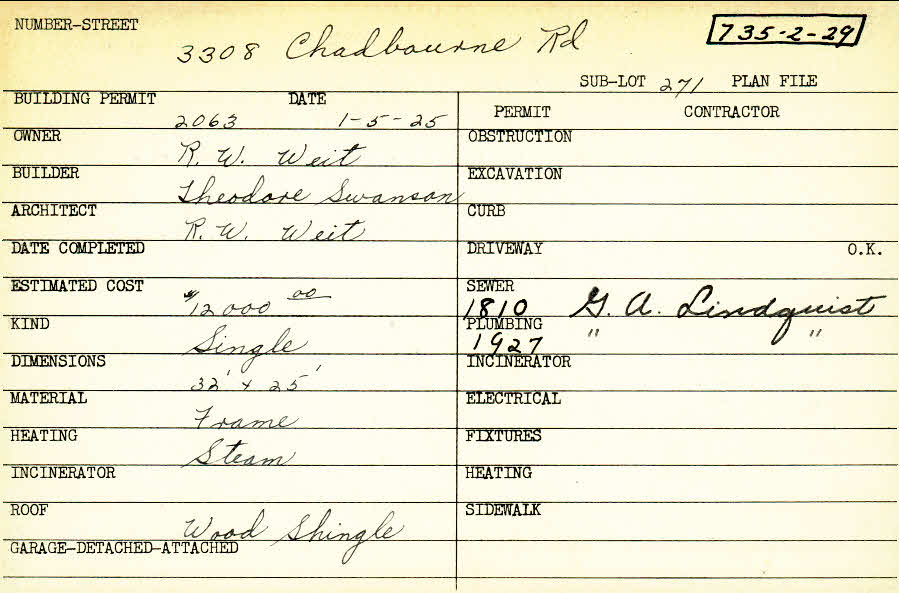 NUMBER-STREET
3308 Chadbourne Rd
735-2-29
SUB-LOT 271 PLAN FILE
BUILDING PERMIT DATE
2063 1-5-25
PERMIT CONTRACTOR
OWNER
R. W. Weit
BUILDER
Theodore Swanson
ARCHITECT
R. W. Weit
DATE COMPLETED
ESTIMATED COST
$12000 00
KIND
Single
DIMENSIONS
32' x 25'
MATERIAL
Frame
HEATING
Steam
INCINERATOR
ROOF
Wood Shingle
GARAGE-DETACHED-ATTACHED
OBSTRUCTION
EXCAVATION
CURB
DRIVEWAY O.K.
SEWER
1810 G. A. Lindquist
PLUMBING
1927 " "
INCINERATOR
ELECTRICAL
FIXTURES
HEATING
SIDEWALK